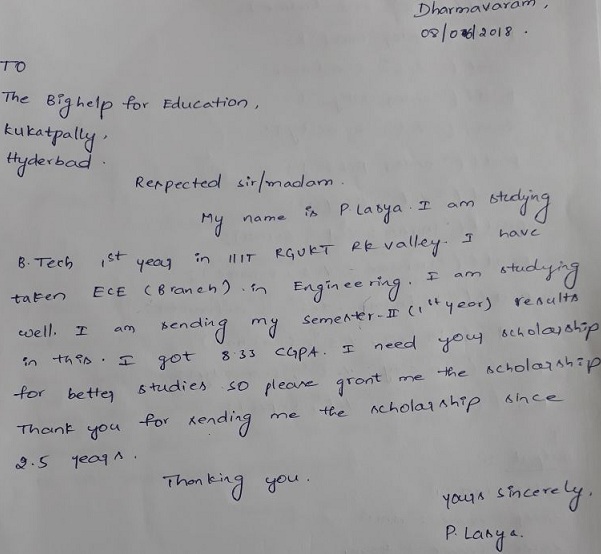 Dharmavaram,
08/06/2018.
TO
The Bighelp for Education,
Kukatpally,
Hyderbad.
Respected sir/madam.
My name is P Lasya. I am studying
B.Tech 1st year in IIIT RGUKT RK valley. I have
taken ECE (Branch) in Engineering. I am studying
well. I am sending my semester-II (1st year) results
in this. I got 8.33 CGPA. I need your scholarship
for better studies so please grant me the scholarship
Thank you for sending me the scholarship since
2.5 years.
Thanking you.
yours sincerely,
P. Lasya.